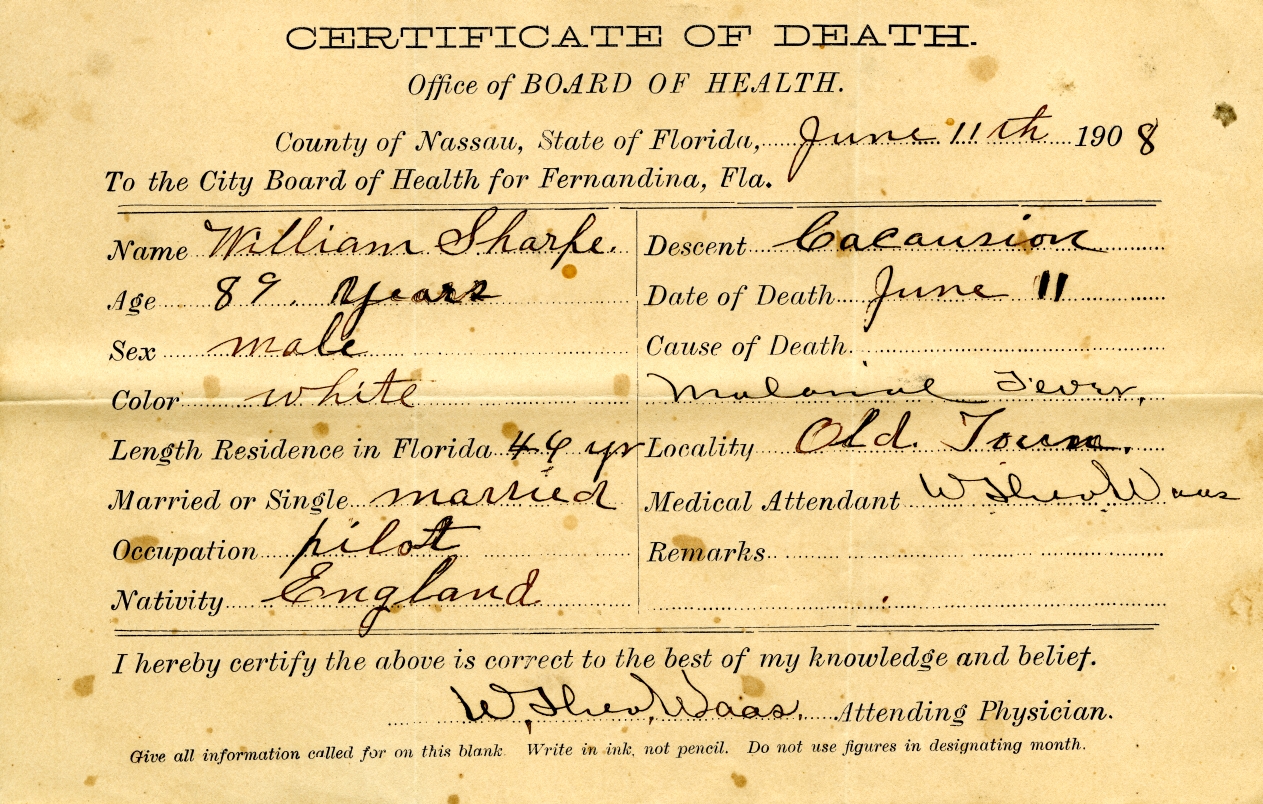 CERTIFICATE OF DEATH.
Office of BOARD OF HEALTH.
County of Nassau, State of Florida, June 11th 1908
To the City Board of Health for Fernandina, Fla.
Name William Sharpe.
Age 89. Years
Sex male
Color white
Length Residence in Florida yr
Married or Single married
Occupation pilot
Nativity England
Descent Cacausion
Date of Death June 11
Cause of Death
Malarial Fever,
Locality Old. Town.
Medical Attendant W Theo Waas
Remarks
I hereby certify the above is correct to the best of my knowledge and belief.
W. Theo, Waas. Attending Physician.
Give all information called for on this blank. Write in ink, not pencil. Do not use figures in designating month.